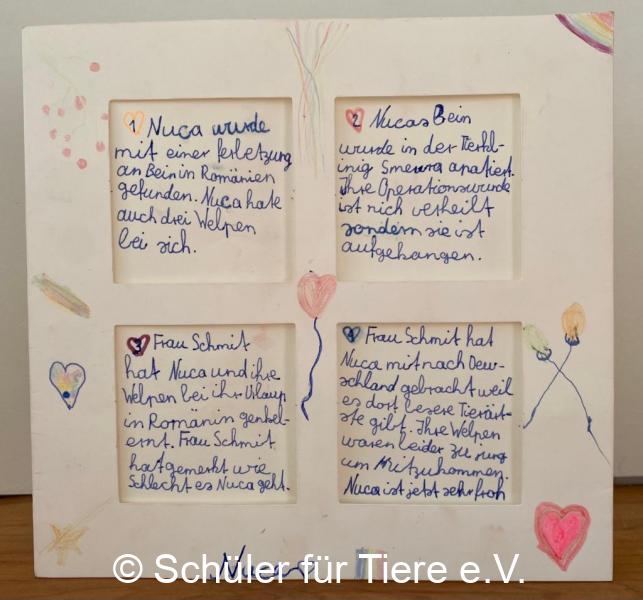 1 Nuca wurde
mit einer ferletzung
an Bein in Romänien
gefunden. Nuca hate
auch drei Welpen
bei sich.
2 Nucas Bein
wurde in der Tierkl-
inig Smeura apatiert.
Ihre Operationswurde
ist nich verheilt
sondern sie ist
aufgegangen.
3 Frau Schmit
hat Nuca und ihre
Welpen bei ihr Urlaup
in Romänin genkel-
ernt. Frau Schmit
hat gemerkt wie
Schlecht es Nuca geht.
4 Frau Schmit hat
Nuca mit nach Deu-
schland gebracht weil
es dort besere Tierärt-
ste gibt. Ihre Welpen
waren leider zu jung
um Mitzuhommen.
Nuca ist jetzt sehr froh
Nuca
© Schüler für Tiere e.V.